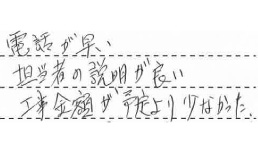 電話が早い
担当者の説明が良い
工事金額が予定より少なかった.